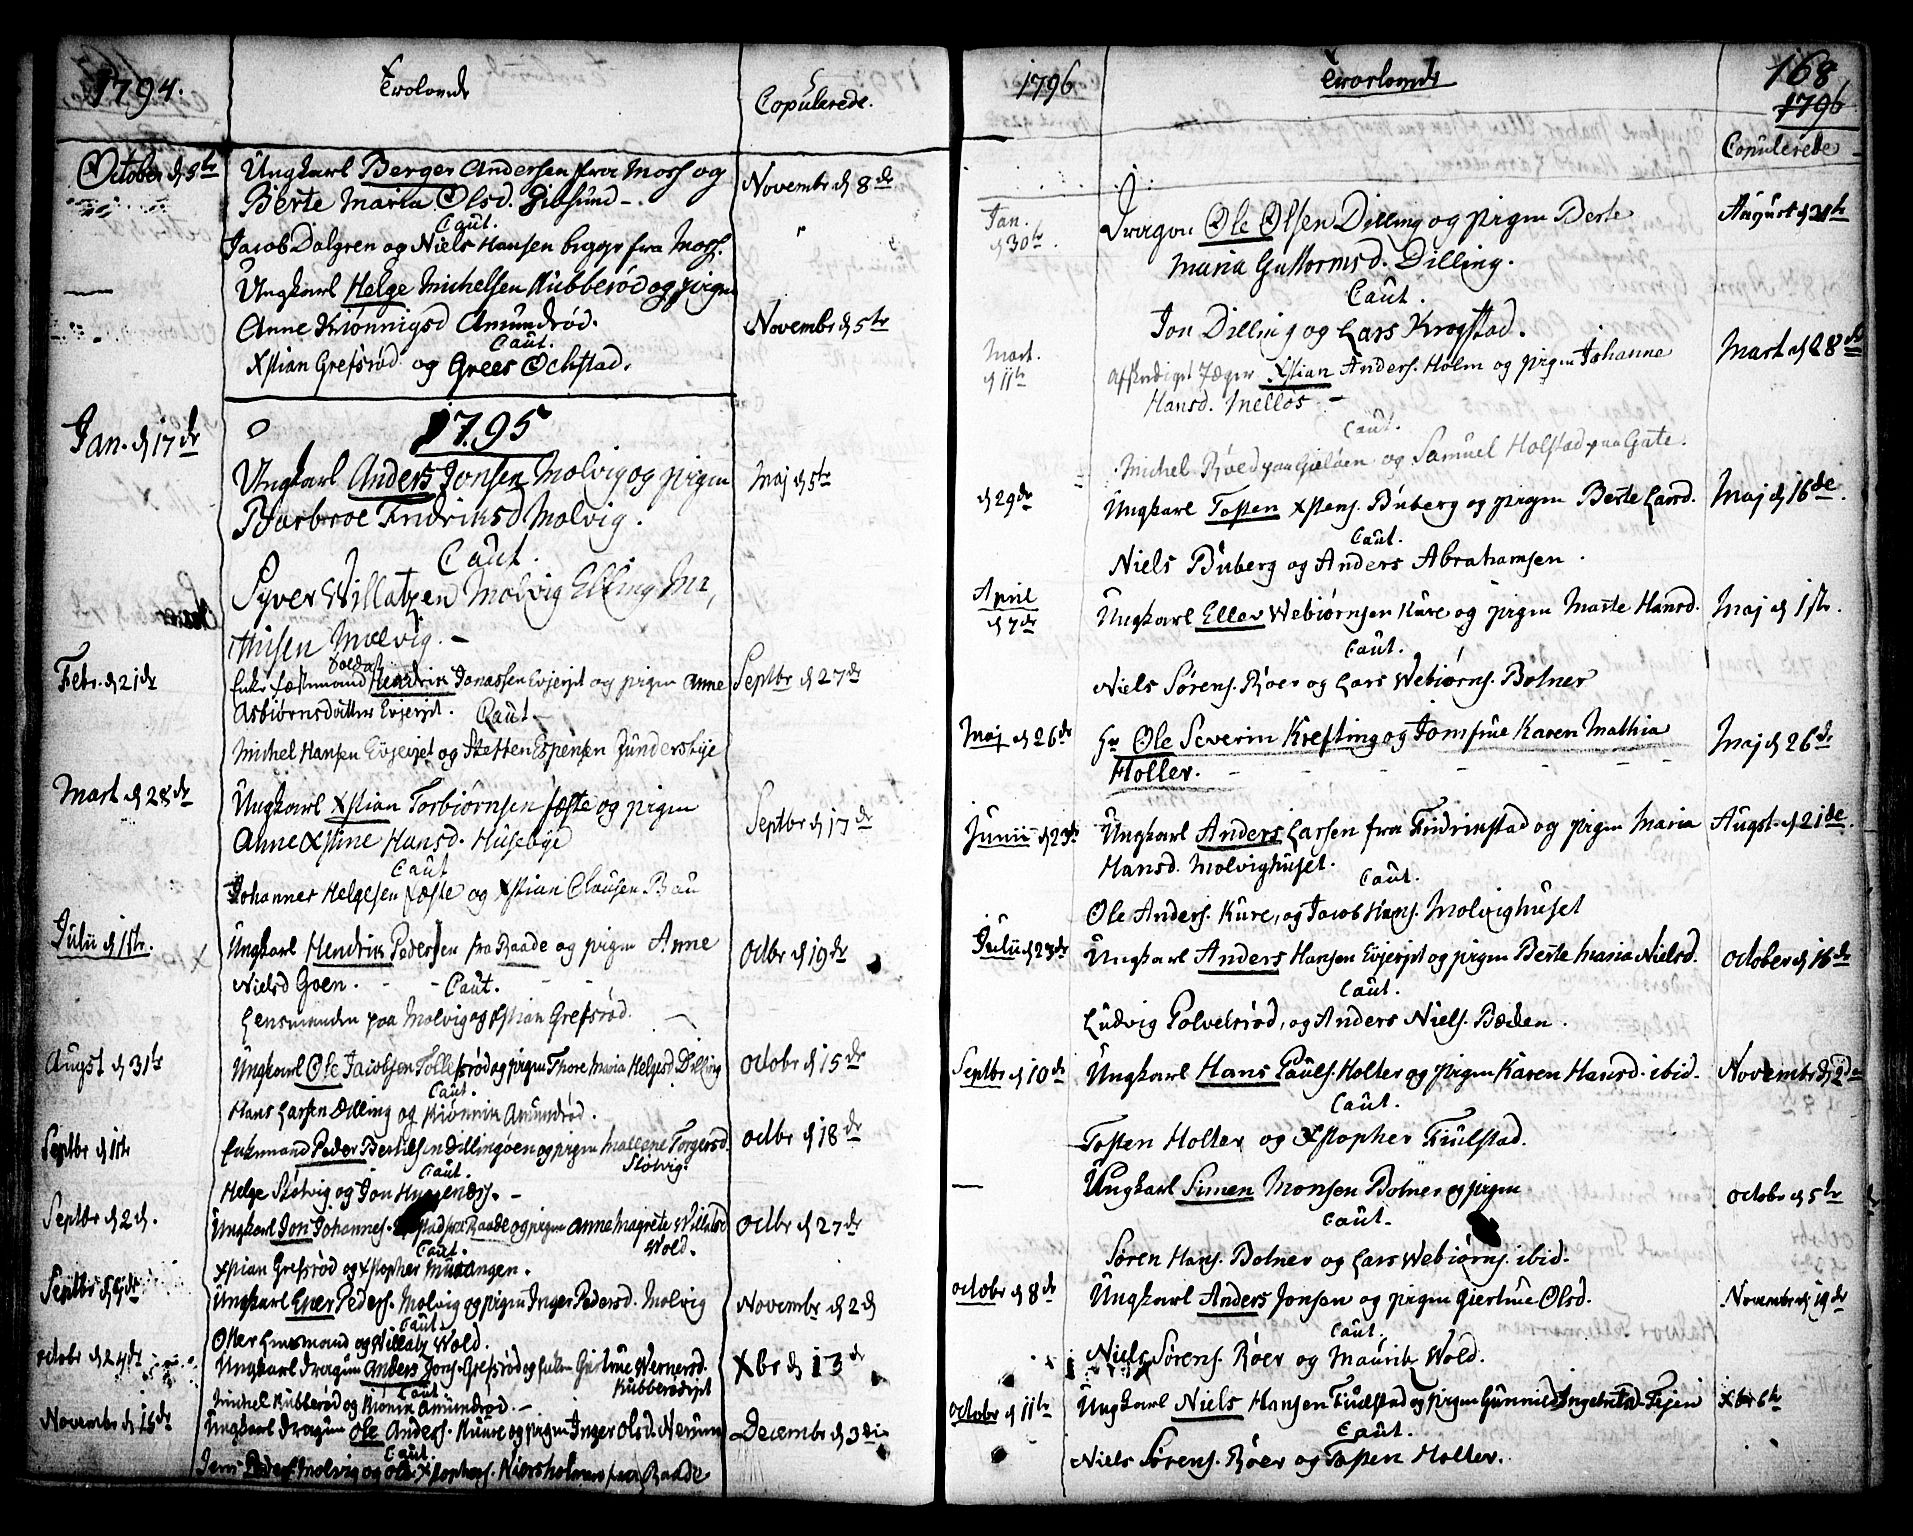 1794.
Trolovede
Copulerede.
October d 5te
Ungkarl Berger Andersen fra Moss og
Novembr d 8de
Berte Maria Olsd. Gibsund -.
Caut.
Jacob Dalgren og Niels Hansen begge fra Moss.
Ungkarl Helge Michelsen Kubberød og pigen
Anne Kiønnigsd Amundrød.
Novembr d 5te
Caut.
Xstian Grefsrød og Grees Ochstad.
1795
Jan. d 17de
Ungkarl Anders Jonsen Molvig og pigen
Maj d 5te
Barbroe Fridriksd Molvig.
Caut.
Syver Willatzen Molvig Elling Ma,
thisen Molvig. -
Febr. d 21de
Soldat
Enke Hendrik Jonassen Evjerjet og pigen Anne
Septbr d 27de
Asbiørnsdatter Evjerjet. Caut -
Michel Hansen Evjerjet og Steffen Espensen
Mart d 28de
Ungkarl Xstian Torbiørnsen fæste og pigen
Septbr d 17de
Anne Xstine Hansd. Husebye
Caut
Johannes Helgesen fæste og Xstian Clausen Bau
Julii d 1ste.
Ungkarl Hendrik Pedersen fra Raade og pigen Anne
Octbr d 19de
Nielsd Goen. - - Caut. - -
Lensmanden paa Molvig og Xstian Grefsrød.
Augst d 31te
Ungkarl Ole Jacobsen Tollefsrød og pigen Thore Maria Helgesd Dilling
Octobr d 15de
Caut.
Hans Larsen Dilling og Kiønnik Amundrød.
Septbr d 1ste
Enkemand Peder Bertelsen Dillingøen og pigen Mallene Torgersd.
Octbr d 18de
Støtvig.
Caut.
Helge Støtvig og Jon Huggenæs. -
Septbr d 2d.
Ungkarl Jon Johannes. fra Raade og pigen Anne Magrete Willatzd
Octbr d 27de
Wold.
Caut.
Xstian Grefsrød og Xstopher Mutangen.
Septbr d 9de
Ungkarl Ener Peders. Molvig og pigen Inger Pedersd. Molvig
Novembr d 2d
Caut.
Otter Lensmand og Willatz Wold.
Octobr d 24de
Ungkarl Dragun Anders Jons. Grefsrød og Enken Giertrue Wernersd.
Xbr d 13de
Kubberødejet
Caut
Michel Kubberød og Kiønik Amundrød. -
Novembr d 16de
Ungkarl Dragun Ole Anders. Kuure og pigen Inger Olsd. Nerum
Decembr d 3die
Caut.
Jens Peders. Molvig og Ole Xstophers. Kiørsholmen paa Raade
168
1796
Trolovede
1796
Copulerede
Jan.
d 30te.
Dragon Ole Olsen Dilling og pigen Berte
August d 21te
Maria Guttormsd. Dilling.
Caut.
Jon Dilling og Lars Krogstad.
Mart.
d 11te
Afskediget Jæger Xstian Anders. Holm og pigen Johanne
Mart d 28de
Hansd. Melløs -
Caut.
Michel Røed paa Gieløen og Samuel Holstad paa Gate.
d 29de
Ungkarl Tosten Xstens. Buberg og pigen Berte Larsd.
Maj d 16de.
Caut.
Niels Buberg og Anders Abrahamsen.
April
d 7de
Ungkarl Ellev Webiørnsen Kure og pigen Marte Hansd.
Maj d 1ste.
Caut.
Niels Sørens. Røer og Lars Webiørns. Botner
Maj d 26de
Hr Ole Severin Krefting og Jomfrue Karen Mathia
Maj d 26de
Holler. - - - - - -
Junii d 23de
Ungkarl Anders Larsen fra Fridrikstad og pigen Maria
Augst. d 21de.
Hansd. Molvighuset.
Caut.
Ole Anders. Kure, og Jacob Hans. Molvighuset
Julii d 23de
Ungkarl Anders Hansen Evjerjet og pigen Berte Maria Nielsd.
October d 16de
Caut.
Ludvig Tolvelsrød, og Anders Niels. Bæcken.
Septbr d 10de
Ungkarl Hans Pauls. Holter og pigen Karen Hansd. ibid.
Novembr d 2den
Caut.
Tosten Holter og Xstopher Fiulstad.
Ungkarl Simen Monsen Botner og pigen
October d 5te
Caut.
Søren Hans. Botner og Lars Webiørns. ibid.
Octobr d 8de
Ungkarl Anders Jonsen og pigen Giertrue Olsd.
Novembr d 19de
Caut.
Niels Sørens. Røer og Maurik Wold.
Octobr d 11te
Ungkarl Niels Hansen Fiulstad og pigen Gunnild Ingebretsd. Fejen
Xbr 6te
Caut.
Niels Sørens. Røer og Tosten Holter.